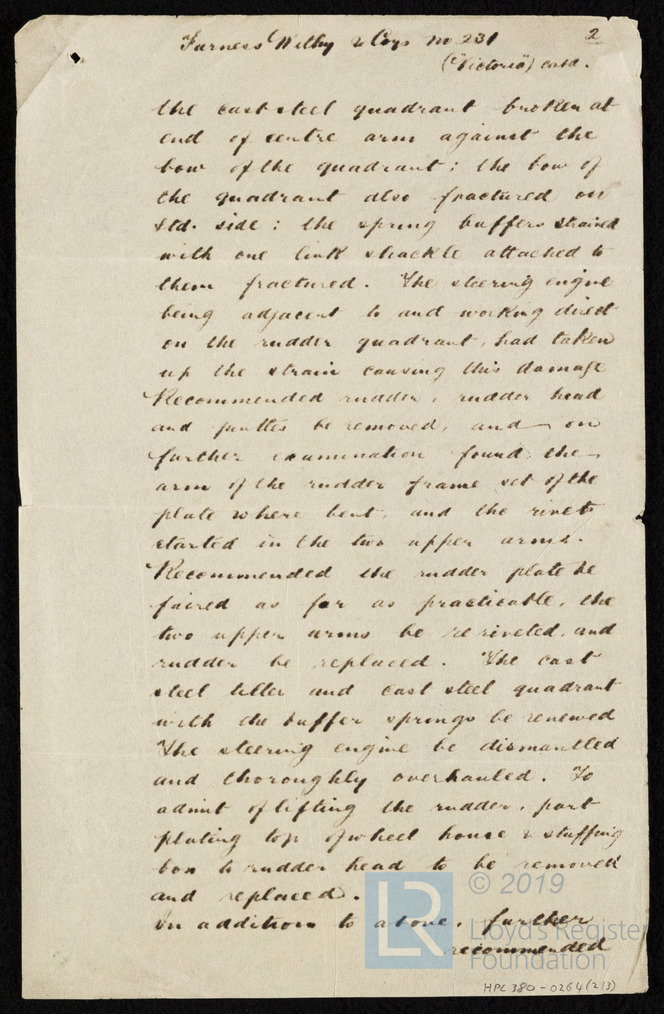 2
Furness Withy & Coys No 231
("Victoria") contd.
the cast steel quadrant broken at
end of centre arm against the
bow of the quadrant; the bow of
the quadrant also fractured on
Std. side; the spring buffers strained
with one link shackle attached to
them fractured. The steering engine
being adjacent to and working direct
on the rudder quadrant, had taken
up the strain causing this damage
Recommended rudder, rudder head
and pintles be removed, and on
further examination found the
arm of the rudder frame set of the
plate where bent, and the rivets
started in the two upper arms.
Recommended the rudder plate be
faired as far as practicable, the
two upper arms be reriveted, and
rudder be replaced. The cast
steel tiller and cast steel quadrant
with the buffer springs be renewed
The steering engine be dismantled
and thoroughly overhauled. To
admit of lifting the rudder, part
plating top of wheel house & stuffing
box to rudder head to be removed
and replaced.
In addition to above, further
recommended
LR
© 2019
Lloyd's Register
Foundation
HPC 380 - 0264 (2/3)